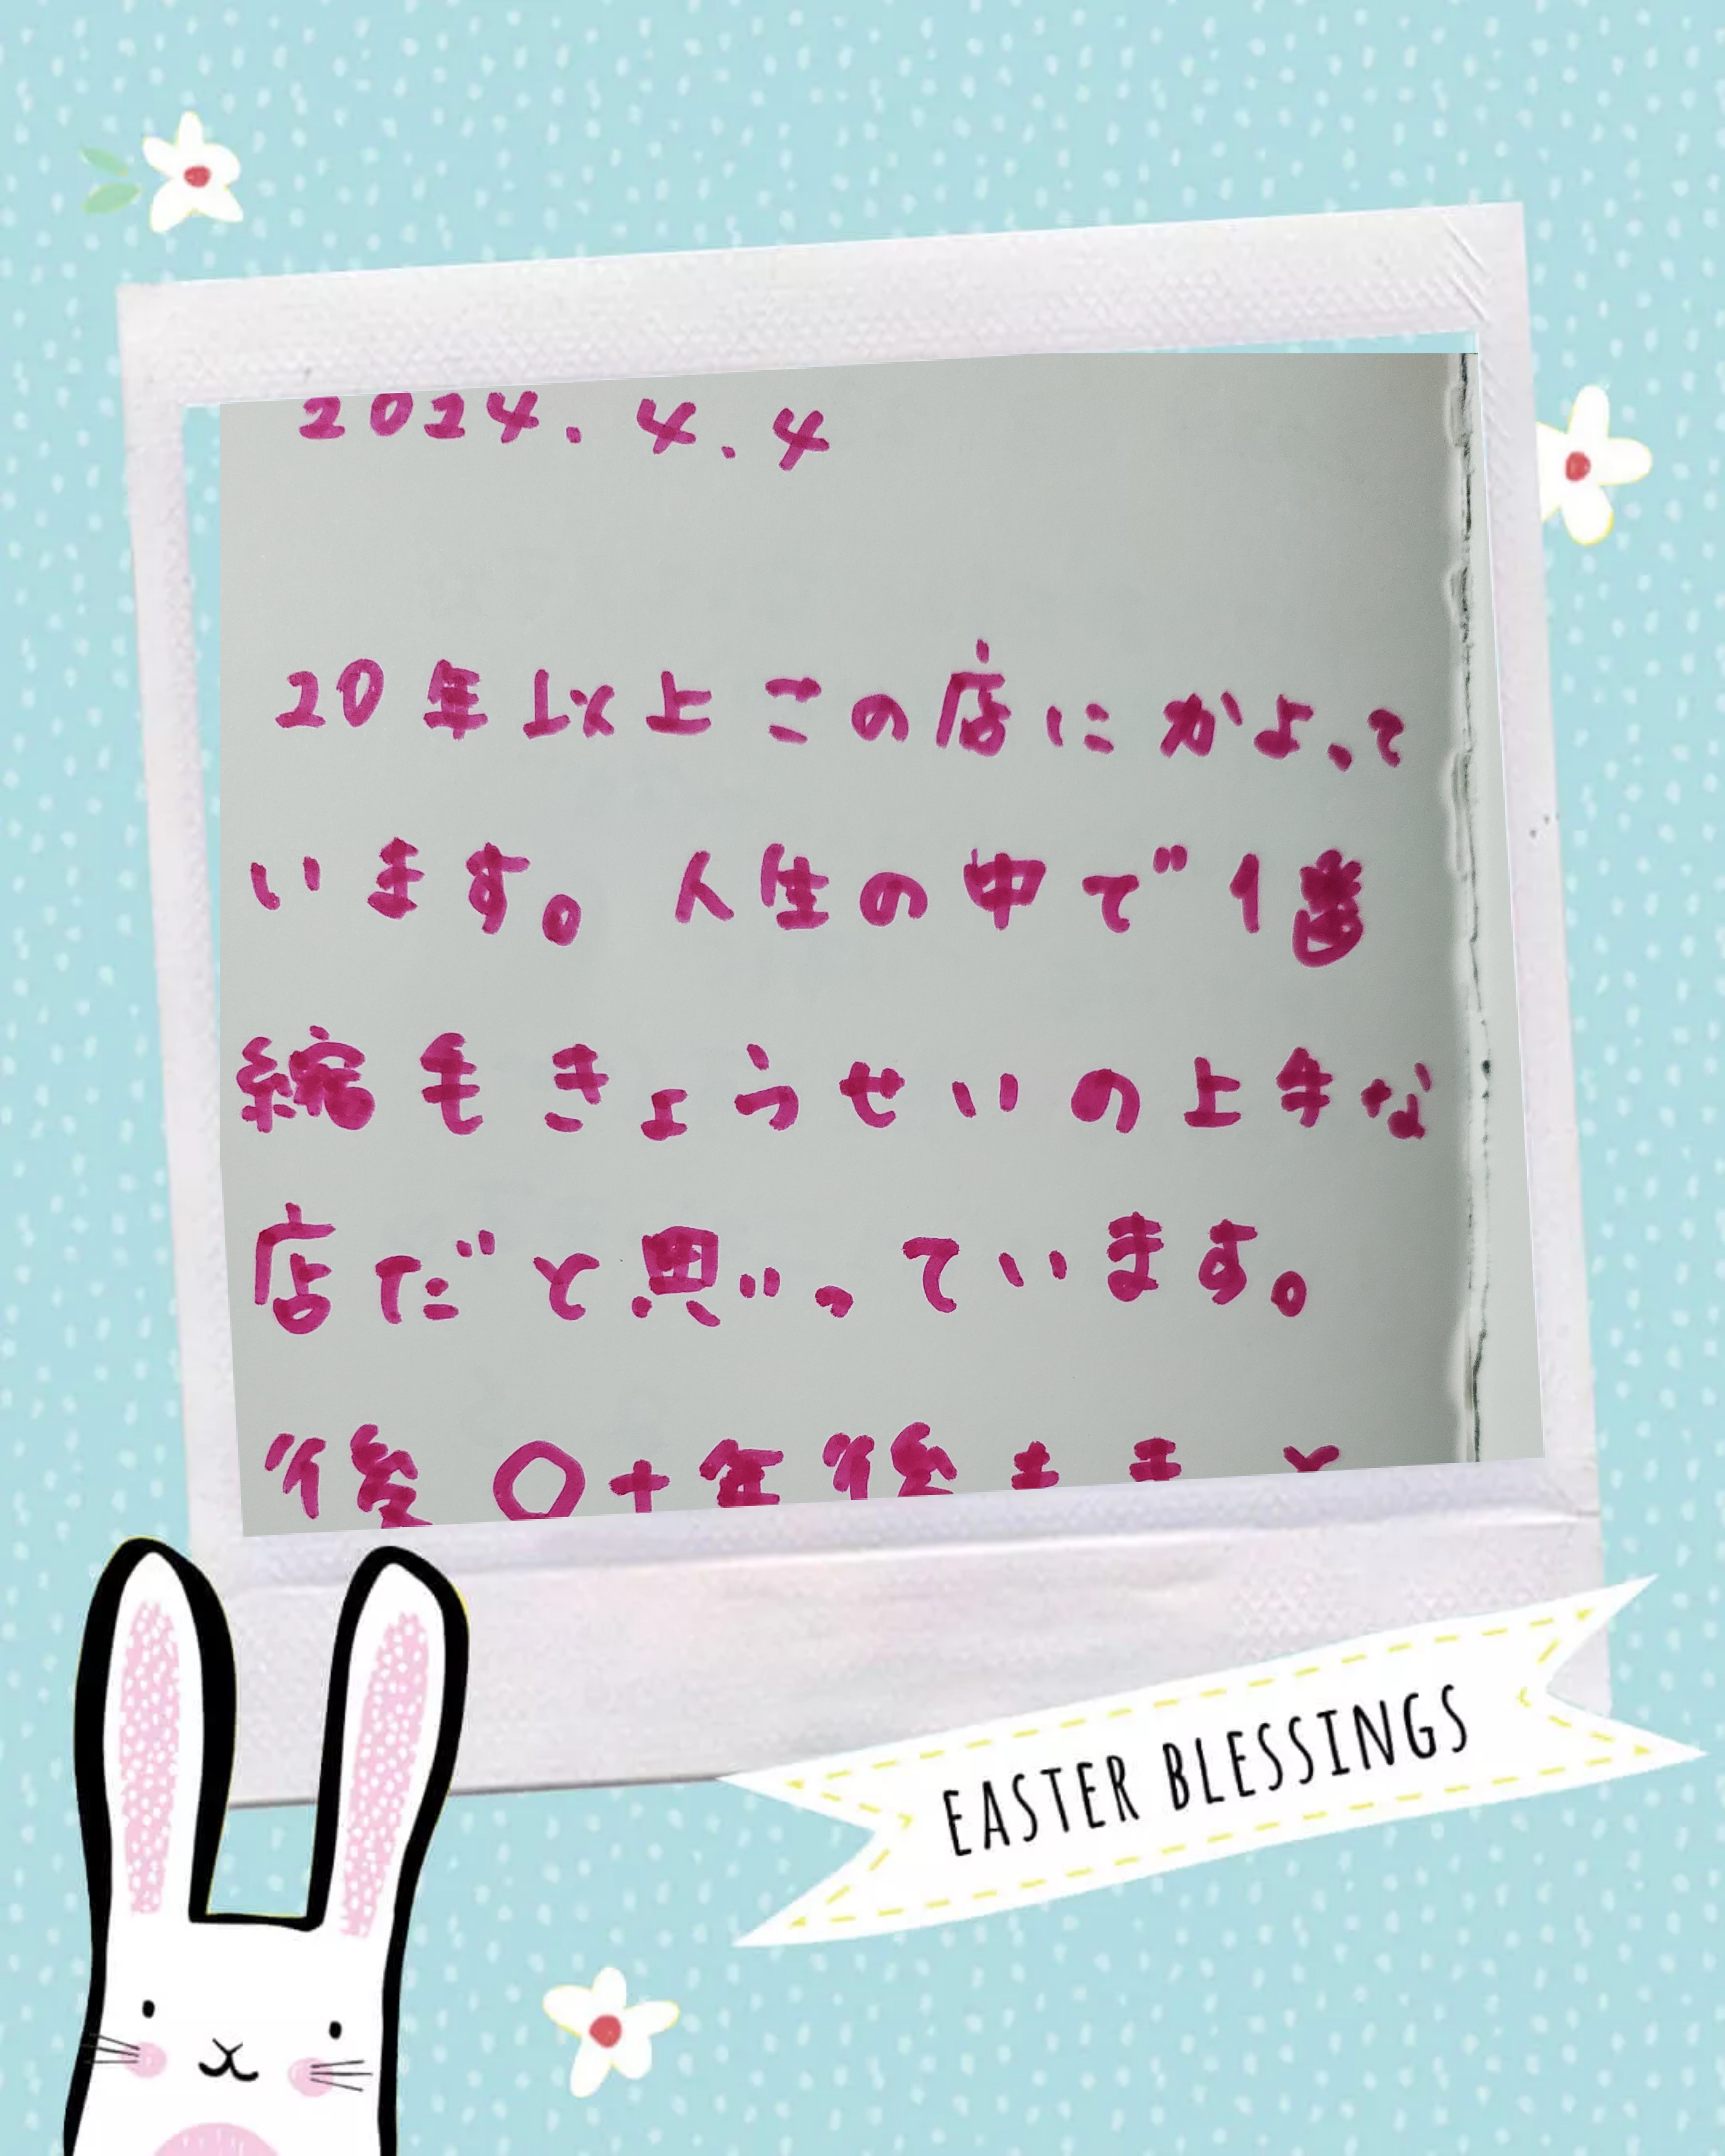 2024.4.4
20年以上この店にかよって
います。人生の中で1番
縮毛きょうせいの上手な
店だと思いっています。
後〇十年後も
EASTER BLESSINGS